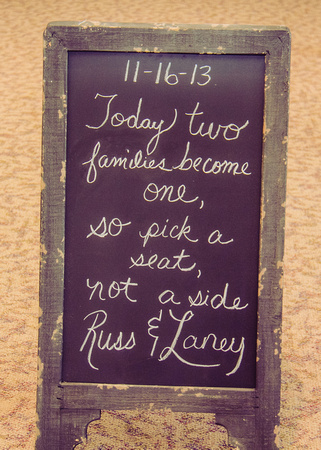 11-16-13
Today two
families become
one,
so pick a
seat,
not a side
Russ & Laney